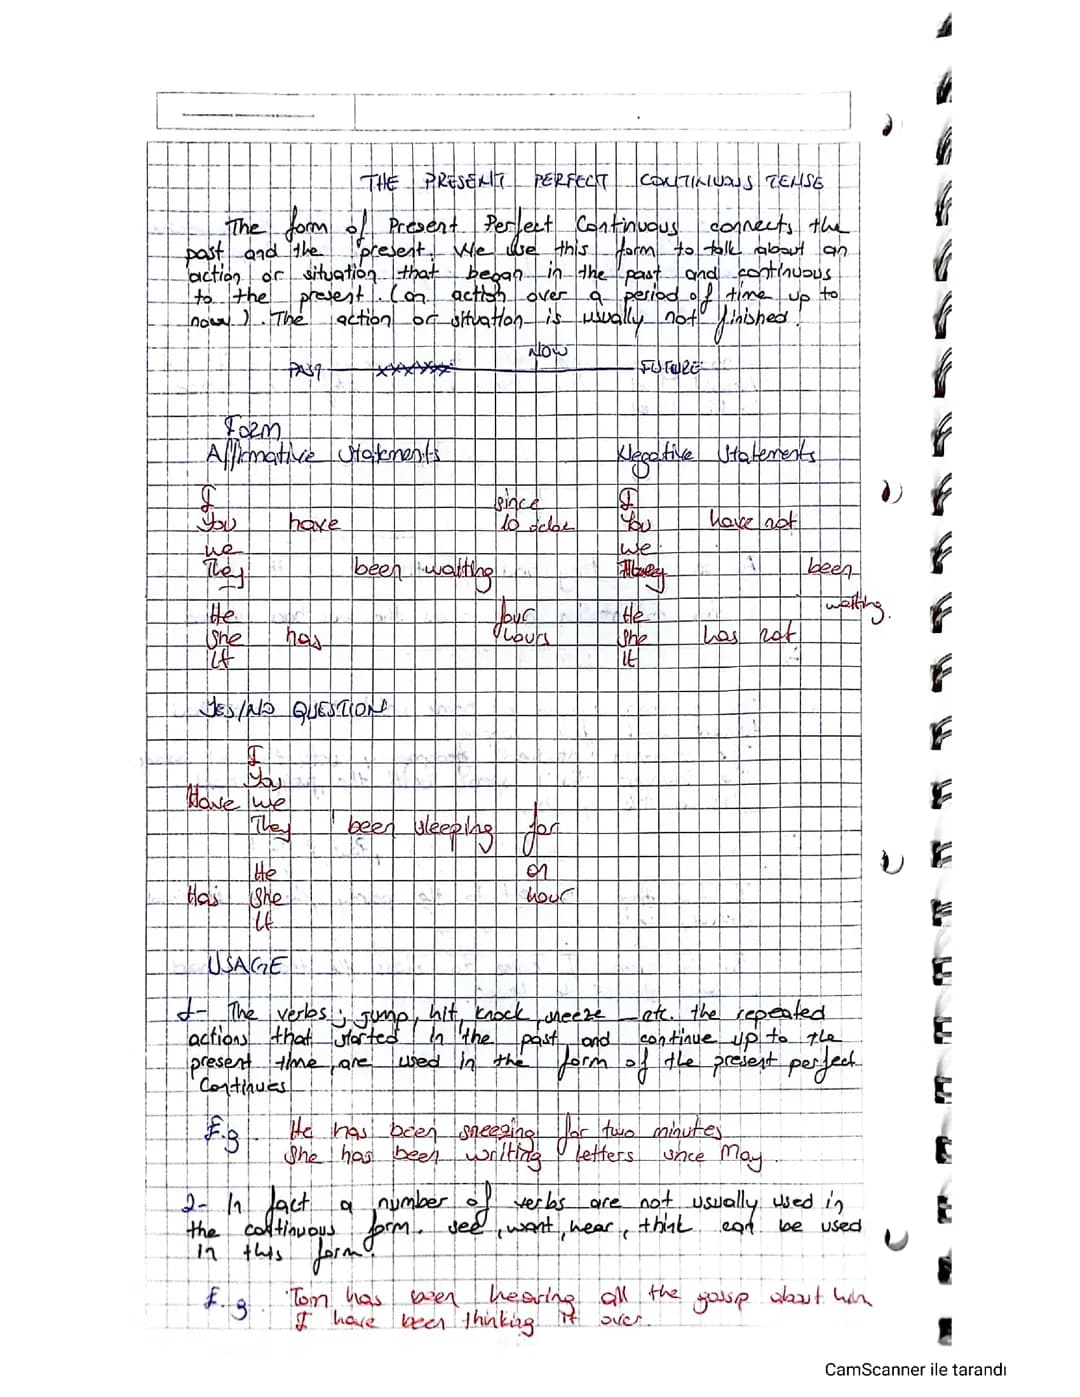 THE PRESENT PERFECT CONTINUOUS TENSE
The form of Present Perfect Continuous connects the
past and the present. We use this form to talk about an
action or situation that began in the past and continuous
to the present. (an action over a period of time up to
now). The action or situation is usually not finished.
NOW
PAST xxxxxx FUTURE
Form
Affirmative Statements Negative Statements
I since I
You have 10 You have not
we we
They been waiting They been
waiting.
He four He
She has hours She has not
It It
YES/NO QUESTION
I
You
Have we
They been sleeping for
He an
Has She hour
It
USAGE
1- The verbs; jump, hit, knock, sneeze etc. the repeated
actions that started in the past and continue up to the
present time, are used in the form of the present perfect
Continues
E.g He has been sneezing for two minutes
She has been writing letters since May.
2- In fact a number of verbs are not usually used in
the continuous form. see, want, hear, think can be used
in this form.
E.g. Tom has been hearing all the gossip about him
I have been thinking it over.
CamScanner ile tarandı